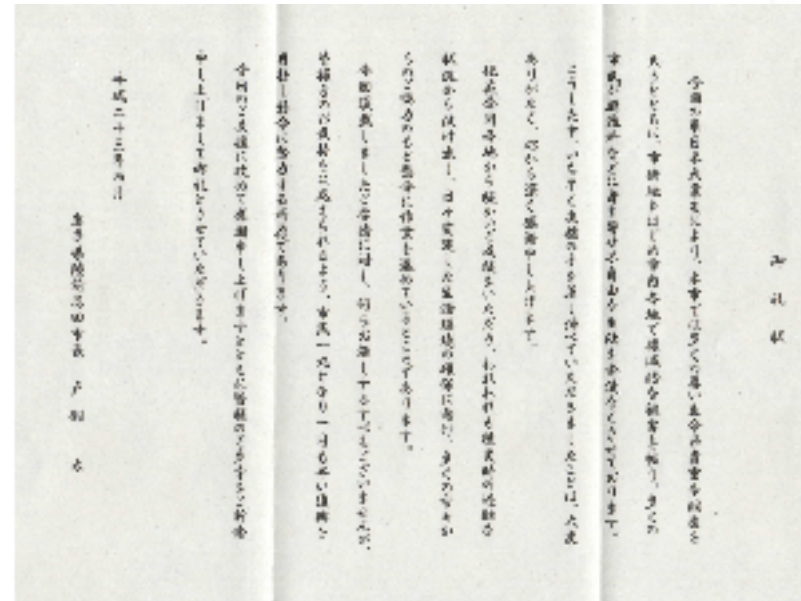 御礼状
今回の東日本大震災により、本市では多くの尊い生命や貴重な財産を
失うとともに、市街地をはじめ市内各地で壊滅的な被害を被り、多くの
市民が避難所などに身を寄せ不自由な生活を余儀なくされております。
こうした中、いち早く支援の手を差し伸べていただきましたことは、大変
ありがたく、心から深く感謝申し上げます。
現在全国各地から温かいご支援をいただき、われわれも
状況から抜け出し、日々変化した生活環境の確保に向け、多くの方々か
らのご協力のもと懸命に作業を進めているところであります。
今回頂戴しましたご厚情に対し、何らお返しするすべもございませんが、
皆様方のお気持ちに応えられるよう、市民一丸となり一日も早い復興を
目指し懸命に努力する所存であります。
今回のご支援に改めて感謝申し上げますとともに皆様のご多幸をご祈念
申し上げまして御礼とさせていただきます。
平成二十三年四月
岩手県陸前高田市長 戸羽 太